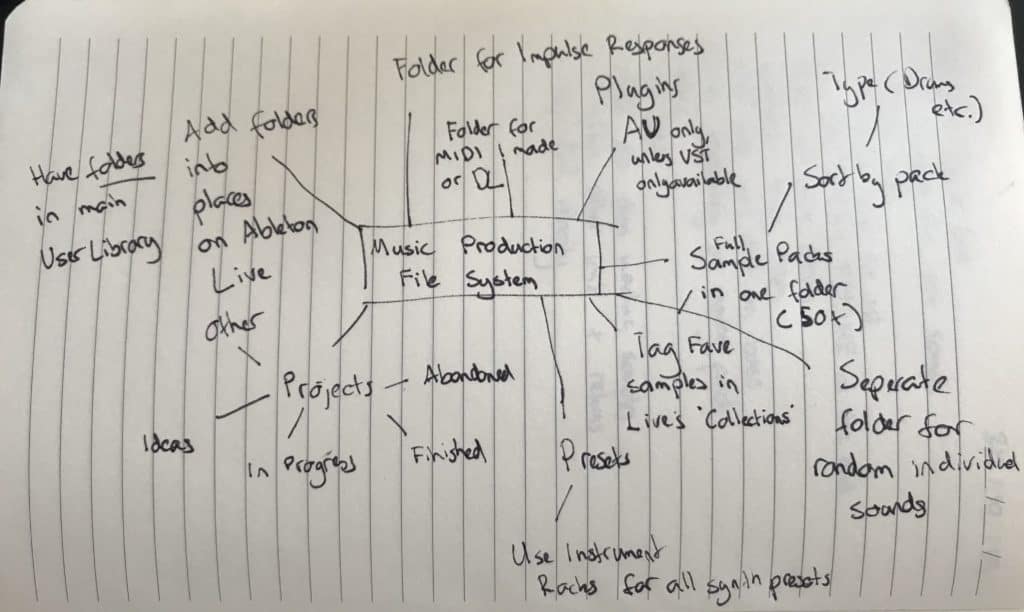 Folder for Impulse Responses
Plugins
AU only,
unless VST
only available
Type (Drums
etc.)
Add folders
into
places
on Ableton
Live
Folder for
MIDI / made
or DL
Have folders
in main
User Library
Sort by pack
Music Production
File System
Full
Sample Packs
in one folder
(50+)
Other
Projects
Abandoned
Ideas
In Progress
Finished
Tag Fave
samples in
Live's 'Collections'
Seperate
folder for
random individual
sounds
Presets
Use Instrument
Racks for all synth presets